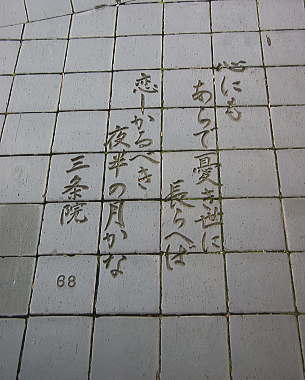 心にも
あらで憂き世に
長らへば
恋しかるべき
夜半の月かな
三条院
68